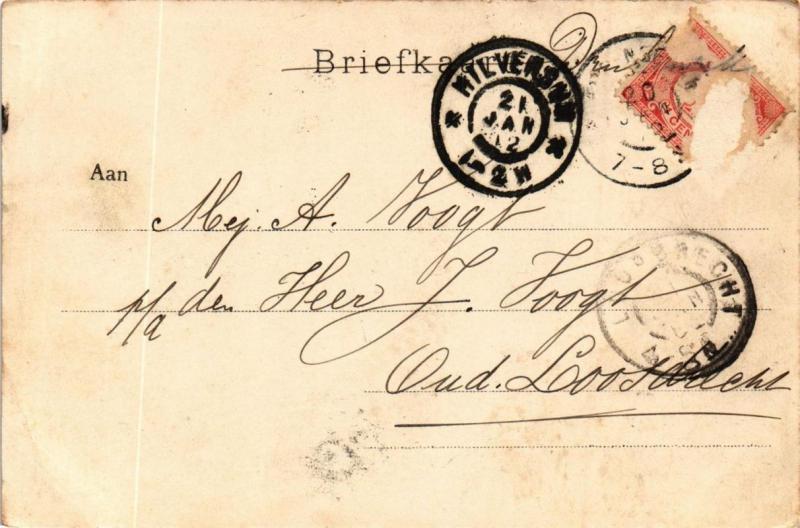 Briefkaart
Drukwerk
HILVERSUM
21
JAN
12
1-2N
7-8
CENT
Aan
Mej. A. Voogt
p/a den Heer J. Voogt
Oud. Loosdrecht
LOOSDRECHT